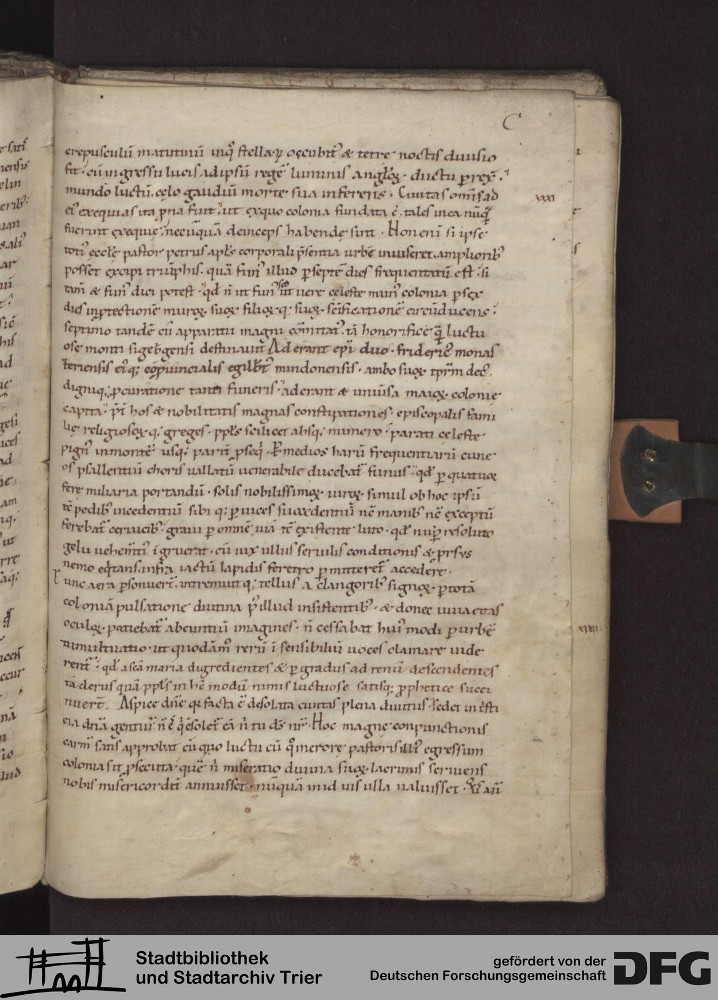 C
crepusculū matutinū inq̊ stellaꝝ occubit' & tetre noctis diuisio
fit. cū ingressu lucis ad ipsū regē luminis angłoꝝ ductu ꝑrex̄.
mundo luctū. cęlo gaudiū morte sua inferens. Ciuitas om̄is ad
xxxi
ei' exequias ita ꝓna fuit. ut ex quo colonia fundata ē. tales in ea nūq̄
fuerint exequię. nec umquā deinceps habendę sint. Non enī si ipse
toti' ecclę pastor petrus apłs corporali p̄sentia urbē inuiseret. amplioribꝰ
posset excipi triūphis. quā fun' illud ꝑ septē dies frequentatū est. si
tam̄ & fun' dici potest. qd̄ ñ ut fun' sed ut uere cęleste mun' colonia ꝑ sex
dies in ꝓtectionē muroꝝ suoꝝ filioꝝ q; suoꝝ scīficationē circūducens.
septimo tandē cū apparatu magni comitat'. tā honorificę q̄ luctu
ose monti sigebgensi destinauit. Aderant ep̄i duo. frideric' monas
teriensis ei' q; cōprouincialis egilbt' mindonensis. ambo suoꝝ tp̄rm dec'.
digniq; ꝓcuratione tanti funeris. aderant & inuisa maioꝝ colonie
capita. p̄t hos & nobilitatis magnas constipationes. episcopalis fami
lię religiosoꝝ q; greges. ppłs scilicet absq; numero. parati cęleste
pign' in montē usq; pariť ꝓseq̇. Per medios harū frequentiarū cune
os psallentiū choris uallatū uenerabile ducebat' funus. qd̄ ꝑ quatuor
fere miliaria portandū. solis nobilissimoꝝ uiroꝝ. simul ob hoc ipsū
tē pedibꝰ incedentiū sibi q; ꝑ uices succedentiū nē manibꝰ nē exceptū
ferebat' ceruicibꝰ. graui ꝑ omnē uiā tē existente luto. qd̄ nuꝑ resoluto
gelu uehemt' īgruerat. cū uix ullus seruilis conditionis & ꝓrsus
nemo eq̇tans. infra iactū lapidis feretro ꝑmitteret' accedere.
Tunc aera ꝑsonuerť. intremuit q; tellus a clangoribꝰ signoꝝ ꝑ totā
coloniā pulsatione diutina p' illud insistentibꝰ. & donec uiua euas
oculoꝝ patiebat' abeuntiū imagines. ñ cessabat hui' modi ꝑ urbē
tumultuatio. ut quodāmº rerū īsensibiliū uoces clamare uide
xxxii
rent'. qd̄ ascā maria digredientes & ꝑ gradus ad renū descendentes
tā clerus quā ppłs in hc̄ modū nimis luctuose satisq; ꝓphetice succi
nuerť. Aspice dn̄e q̇a facta ē desolata ciuitas plena diuitiis. sedet in tsti
cia dn̄a gentiū. ñ ē q̇ cōsolet' eā ñ tu ds̄ nr̄. Hoc magnę conpunctionis
carm̄ satis approbat cū quo luctu cū q̊ merore pastoris illi' egressum
colonia sit ꝓsecuta. quē ñ miseratio diuina suoꝝ lacrimis seruiens
nobis misericordit' annuisset. nūquā inid uis ulla ualuisset. Xi' aū
Stadtbibliothek
und Stadtarchiv Trier
gefördert von der
Deutschen Forschungsgemeinschaft
DFG